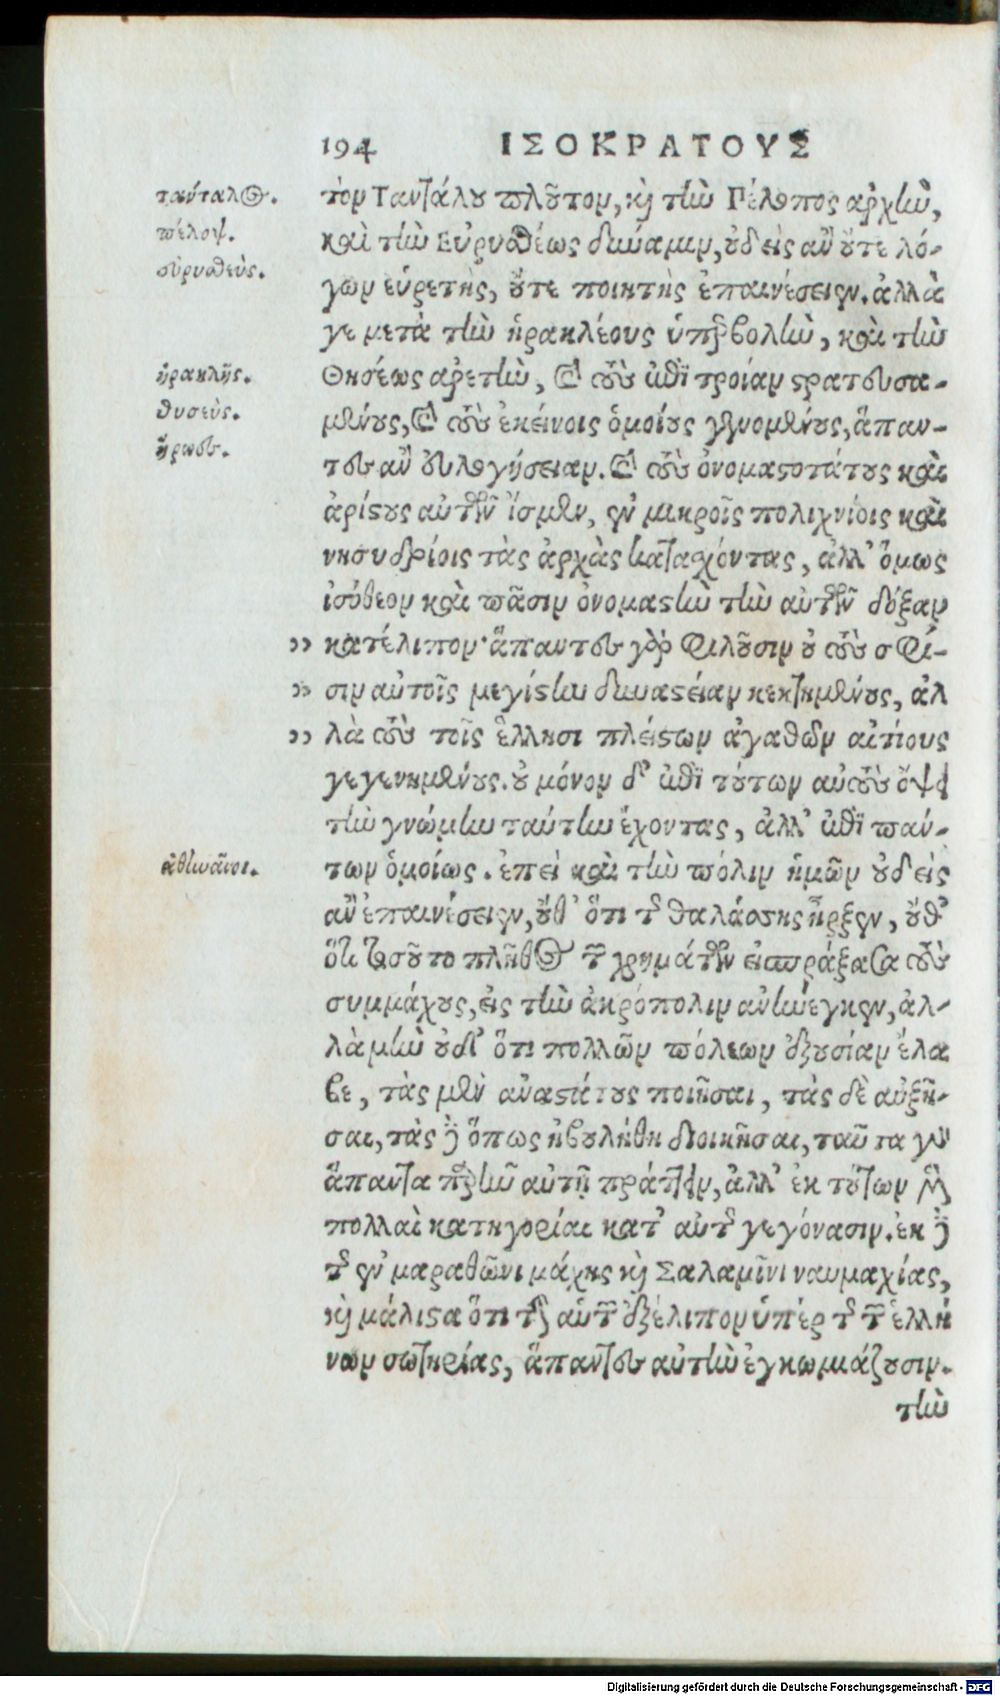 194 ΙΣΟΚΡΑΤΟΥΣ
τάνταλος.
πέλοψ.
εὐρυσθεὺς.
ἡρακλῆς.
θυσεὺς.
ἥρωες.
ἀθηναῖοι.
τὸν Ταντάλου πλοῦτον, καὶ τὴν Πέλοπος ἀρχὴν,
καὶ τὴν Εὐρυσθέως δύναμιν, οὐδεὶς ἂν οὔτε λό-
γων εὑρετὴς, οὔτε ποιητὴς ἐπαινέσειεν. ἀλλὰ
γε μετὰ τὴν ἡρακλέους ὑπερβολὴν, καὶ τὴν
Θησέως ἀρετὴν, καὶ τοὺς ἐπὶ τροίαν στρατευσα-
μένους, καὶ τοὺς ἐκείνοις ὁμοίους γενομένους, ἅπαν-
τες ἂν εὐλογήσειαν. καὶ τοὺς ὀνομαστοτάτους καὶ
ἀρίστους αὐτῶν ἴσμεν, ἐν μικροῖς πολιχνίοις καὶ
νησυδρίοις τὰς ἀρχὰς κατασχόντας, ἀλλ' ὅμως
ἰσόθεον καὶ πᾶσιν ὀνομαστὴν τὴν αὐτῶν δόξαν
,, κατέλιπον· ἅπαντες γὰρ φιλοῦσιν οὐ τοὺς σφί-
,, σιν αὐτοῖς μεγίστην δυναστείαν κεκτημένους, ἀλ
,, λὰ τοὺς τοῖς ἕλλησι πλείστων ἀγαθῶν αἰτίους
γεγενημένους. οὐ μόνον δ' ἐπὶ τούτων αὐτοὺς ὄψει
τὴν γνώμην ταύτην ἔχοντας, ἀλλ' ἐπὶ πάν-
των ὁμοίως. ἐπεὶ καὶ τὴν πόλιν ἡμῶν οὐδεὶς
ἂν ἐπαινέσειεν, οὔθ' ὅτι τῆς θαλάσσης ἦρξεν, οὔθ'
ὅτι τοσοῦτο πλῆθος τῶν χρημάτων εἰσπράξασα τοὺς
συμμάχους, εἰς τὴν ἀκρόπολιν ἀνήνεγκεν, ἀλ-
λὰ μὴν οὐδ' ὅτι πολλῶν πόλεων ἐξουσίαν ἔλα
βε, τὰς μὲν ἀναστάτους ποιῆσαι, τὰς δὲ αὐξῆ-
σαι, τὰς δὲ ὅπως ἠβουλήθη διοικῆσαι, ταῦτα γὰρ
ἅπαντα παρῆν αὐτῇ πράττειν, ἀλλ' ἐκ τούτων μὲν
πολλαὶ κατηγορίαι κατ' αὐτῆς γεγόνασιν. ἐκ δὲ
τῆς ἐν μαραθῶνι μάχης καὶ Σαλαμῖνι ναυμαχίας,
καὶ μάλιστα ὅτι τὴν αὑτῶν ἐξέλιπον ὑπὲρ τῆς τῶν ἑλλή
νων σωτηρίας, ἅπαντες αὐτὴν ἐγκωμιάζουσιν.
τὴν
Digitalisierung gefördert durch die Deutsche Forschungsgemeinschaft - DFG